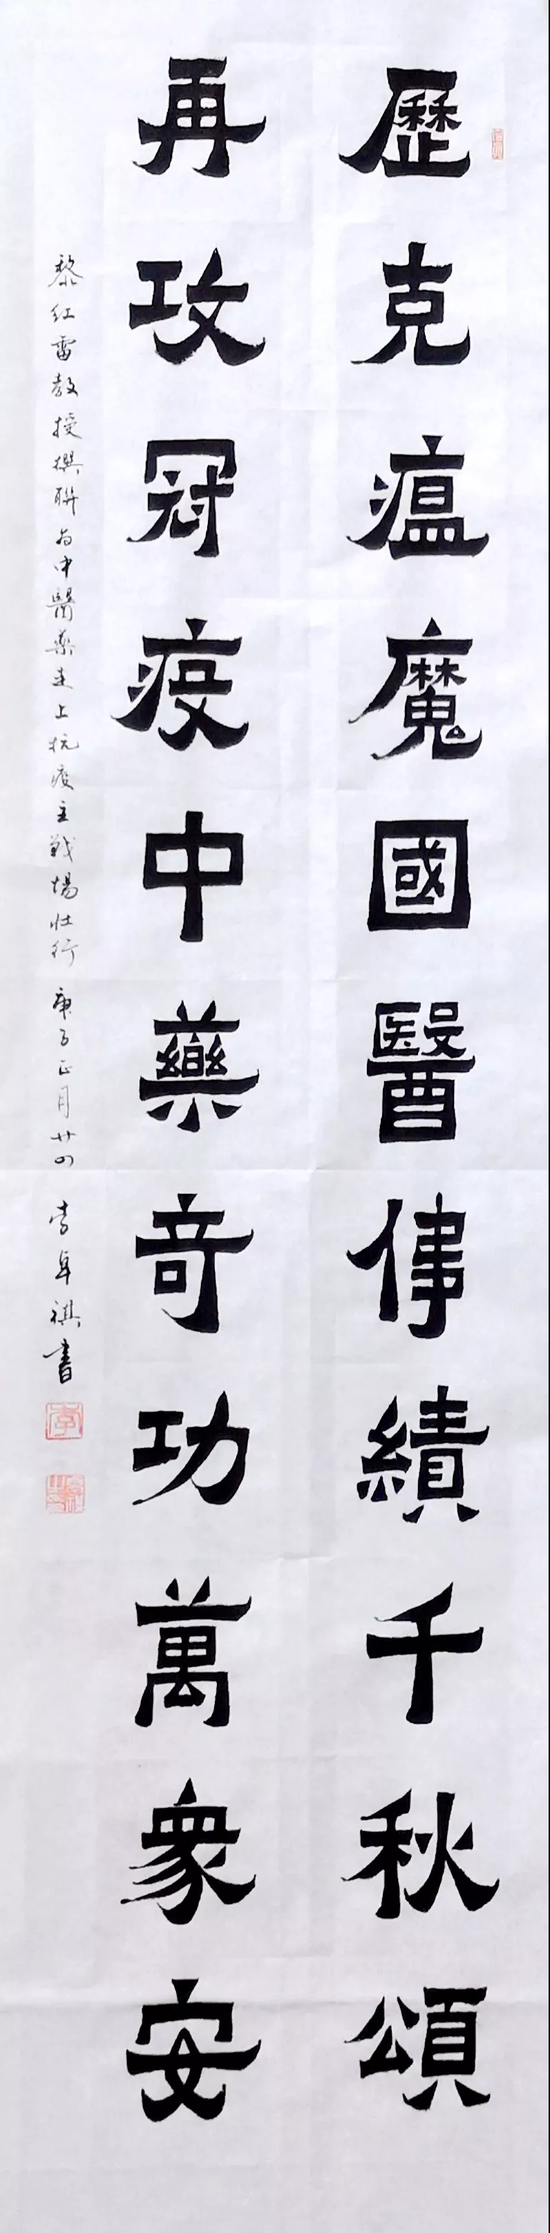 歷克瘟魔國醫偉績千秋頌
再攻冠疫中藥奇功萬衆安
黎红雷教授撰联为中醫藥走上抗疫主戰場壮行 庚子正月廿四 李卓祺書